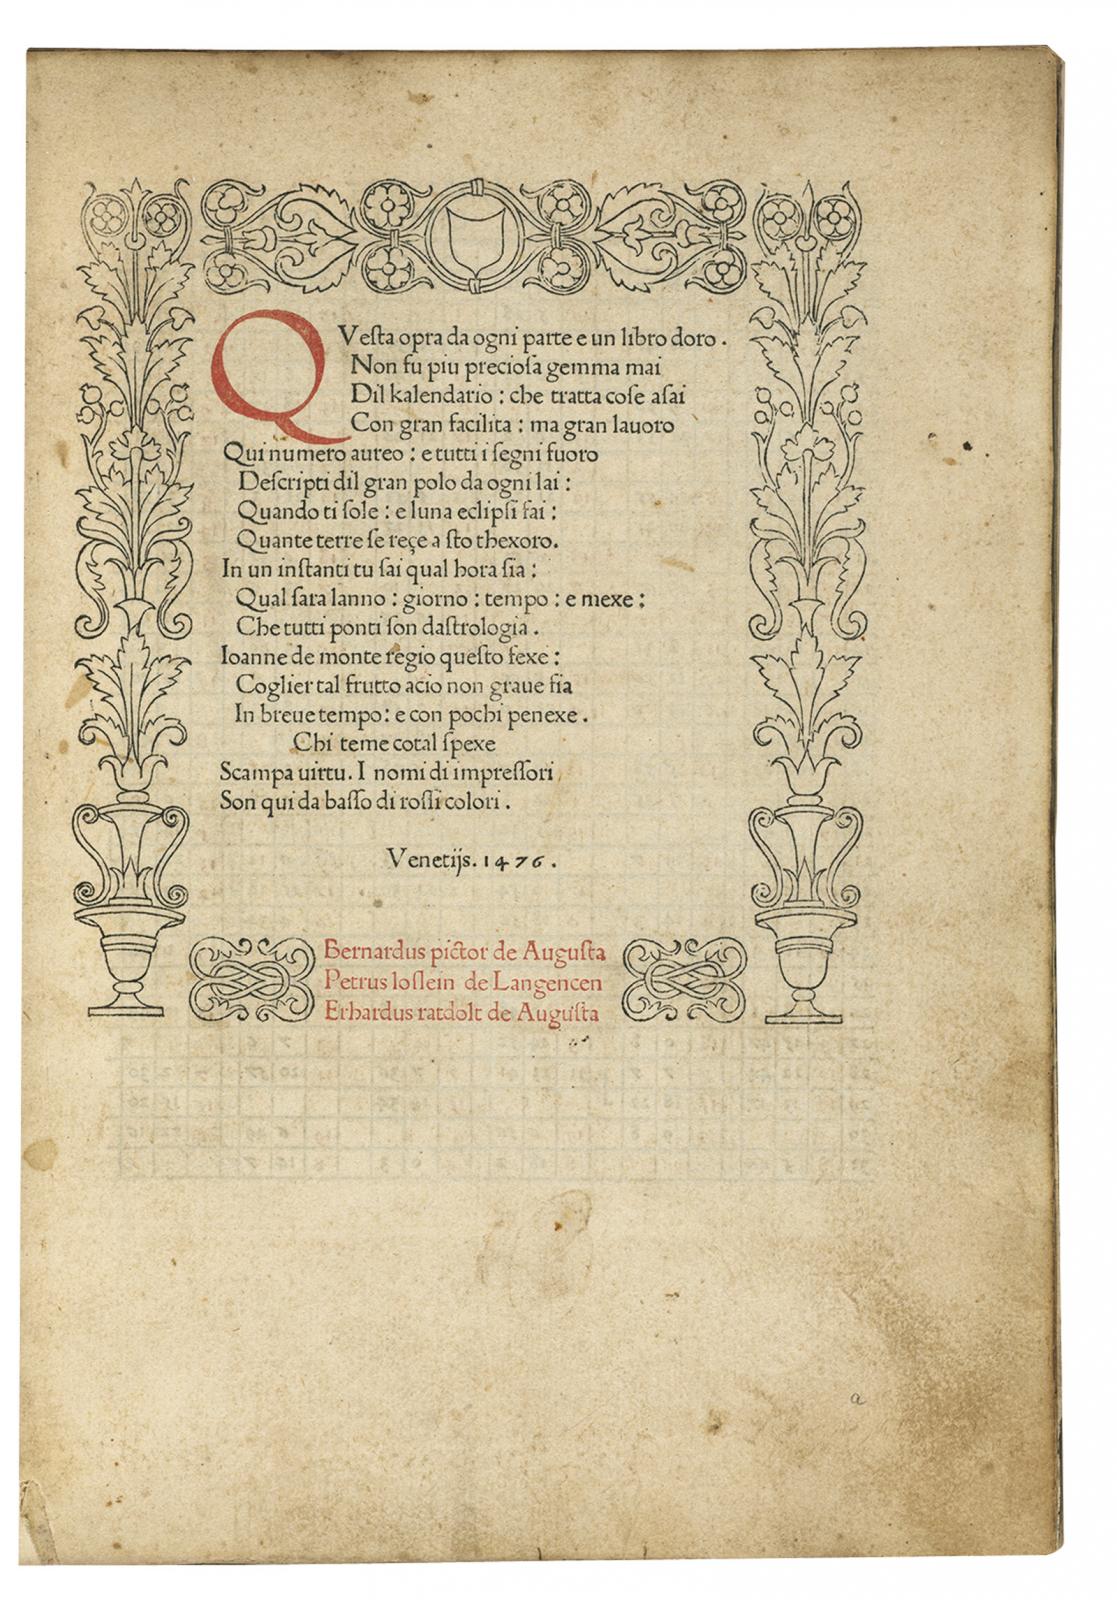 QVeſta opra da ogni parte e un libro doro.
Non fu piu precioſa gemma mai
Dil kalendario: che tratta coſe aſai
Con gran facilita: ma gran lauoro
Qui numero aureo: e tutti i ſegni fuoro
Deſcripti dil gran polo da ogni lai:
Quando ti ſole: e luna eclipſi fai:
Quante terre ſe reçe a ſto thexoro.
In un inſtanti tu ſai qual hora ſia:
Qual ſara lanno: giorno: tempo: e mexe:
Che tutti ponti ſon daſtrologia.
Ioanne de monte regio queſto fexe:
Coglier tal frutto acio non graue ſia
In breue tempo: e con pochi penexe.
Chi teme cotal ſpexe
Scampa uirtu. I nomi di impreſſori
Son qui da baſſo di roſſi colori.
Venetijs. 1476.
Bernardus pictor de Auguſta
Petrus loſlein de Langencen
Erhardus ratdolt de Auguſta
a